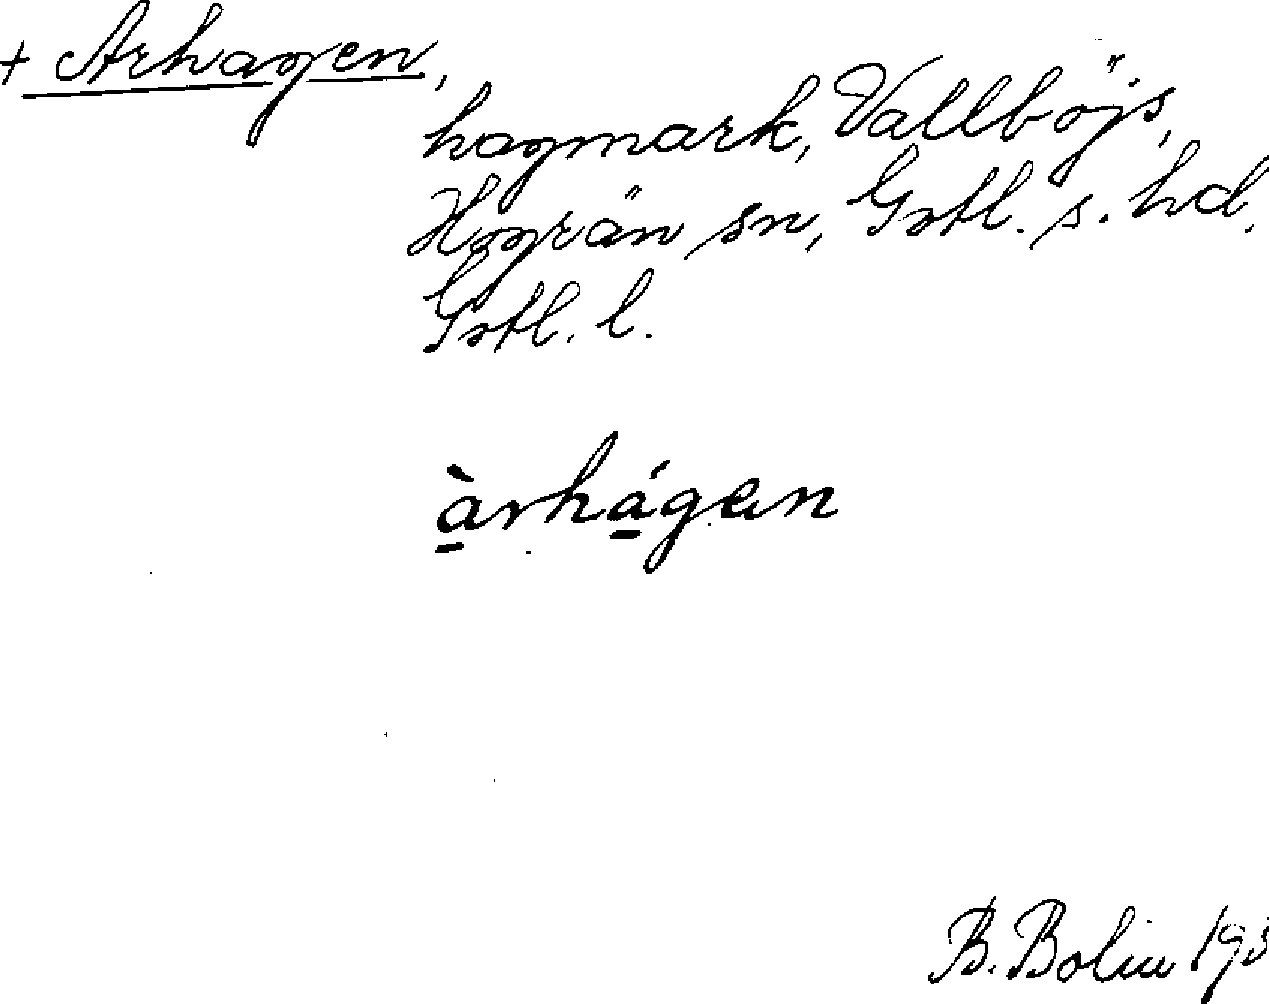 + Arhagen,
hagmark, Vallböjs,
Hogrän sn, Gotl. s. hd.
Gotl. l.
àrhágen
B. Bolin 193